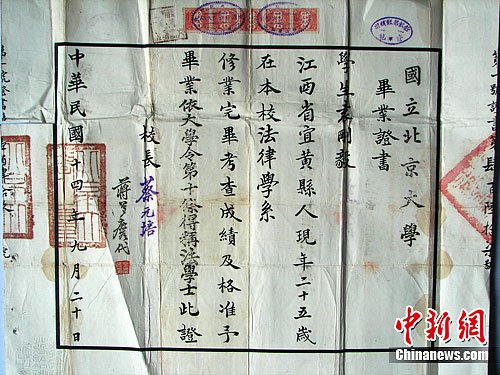 國立北京大學
畢業證書
學生袁剛毅
江西省宜黃縣人現年二十五歲
在本校法律學系
修業完畢考查成績及格准予
畢業依大學令第十條得稱法學士此證
校長 蔡元培
蔣夢麐代
中華民國十四年九月二十日
中新網
Chinanews.com.cn